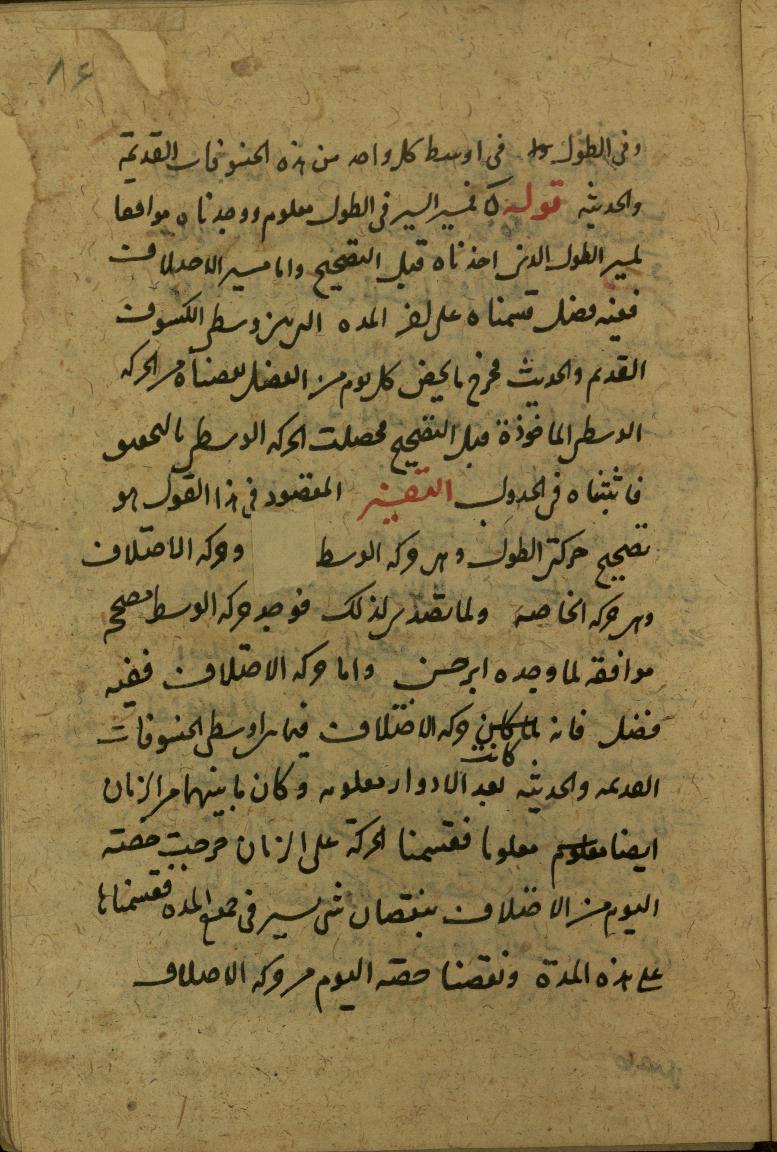 ٨٤
وفى الطول فى اوسط كل واحد من هذه الخسوفات القديمة
والحديثه قوله كمسير فى الطول معلوم ووجدناه موافقا
لمسير الطول الذى اخذناه قبل التصحيح واما مسير الاختلاف
ففيه فضل قسمناه على المدة التى بين وسطى الكسوف
القديم والحديث فخرج ما يخص كل يوم من الفضل نقصناه من الحركه
الوسطى الماخوذة قبل التصحيح فحصلت الحركه الوسطى بالتحقيق
فاثبتناه فى الجدول التفسير المقصود فى هذا القول هو
تصحيح حركتى الطول وهى حركه الوسط وحركه الاختلاف
وهى حركه الخاصه ولما تصدى لذلك فوجد حركه الوسط مصححه
موافقه لما وجده ابرخس واما حركه الاختلاف ففيه
فضل فانه لما كانت حركه الاختلاف فيما بين اوسطى الخسوفات
القديمه والحديثه بعد الادوار معلومه وكان ما بينهما من الزمان
ايضا معلوما فقسمنا الحركة على الزمان خرجت حصته
اليوم من الاختلاف بنقصان شى يسير فى جميع المده فقسمناها
على هذه المدة ونقصنا حصته اليوم من حركه الاختلاف